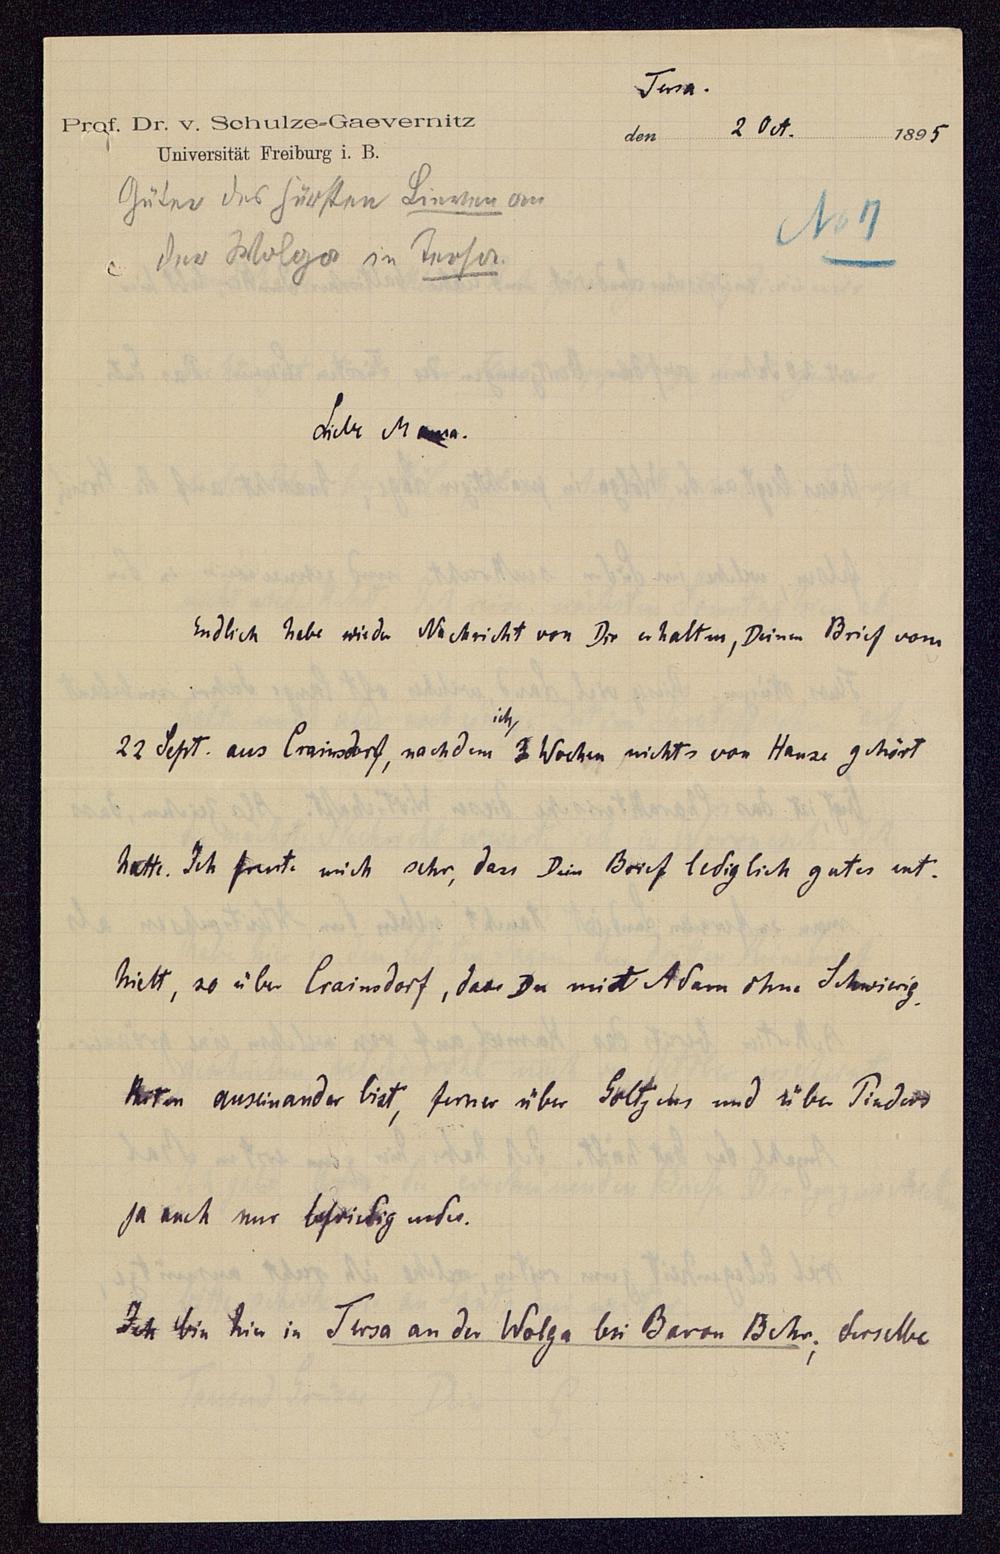 Tersa.
Prof. Dr. v. Schulze-Gaevernitz
den 2 Oct. 1895
Universität Freiburg i. B.
Güter des Fürsten Liewen an
der Wolga in Tersa.
No 7
Liebe Mama.
Endlich habe wieder Nachricht von Dir erhalten, Deinen Brief vom
22 Sept. aus Crainsdorf, nachdem ich 3 Wochen nichts von Hause gehört
hatte. Ich freute mich sehr, dass Dein Brief lediglich gutes ent-
hielt, so über Crainsdorf, dass Du mit Adam ohne Schwierig-
keiten auseinander bist, ferner über Goltzens und über Pinders
ja auch nur befriedigendes.
Ich bin hier in Tersa an der Wolga bei Baron Behr; derselbe